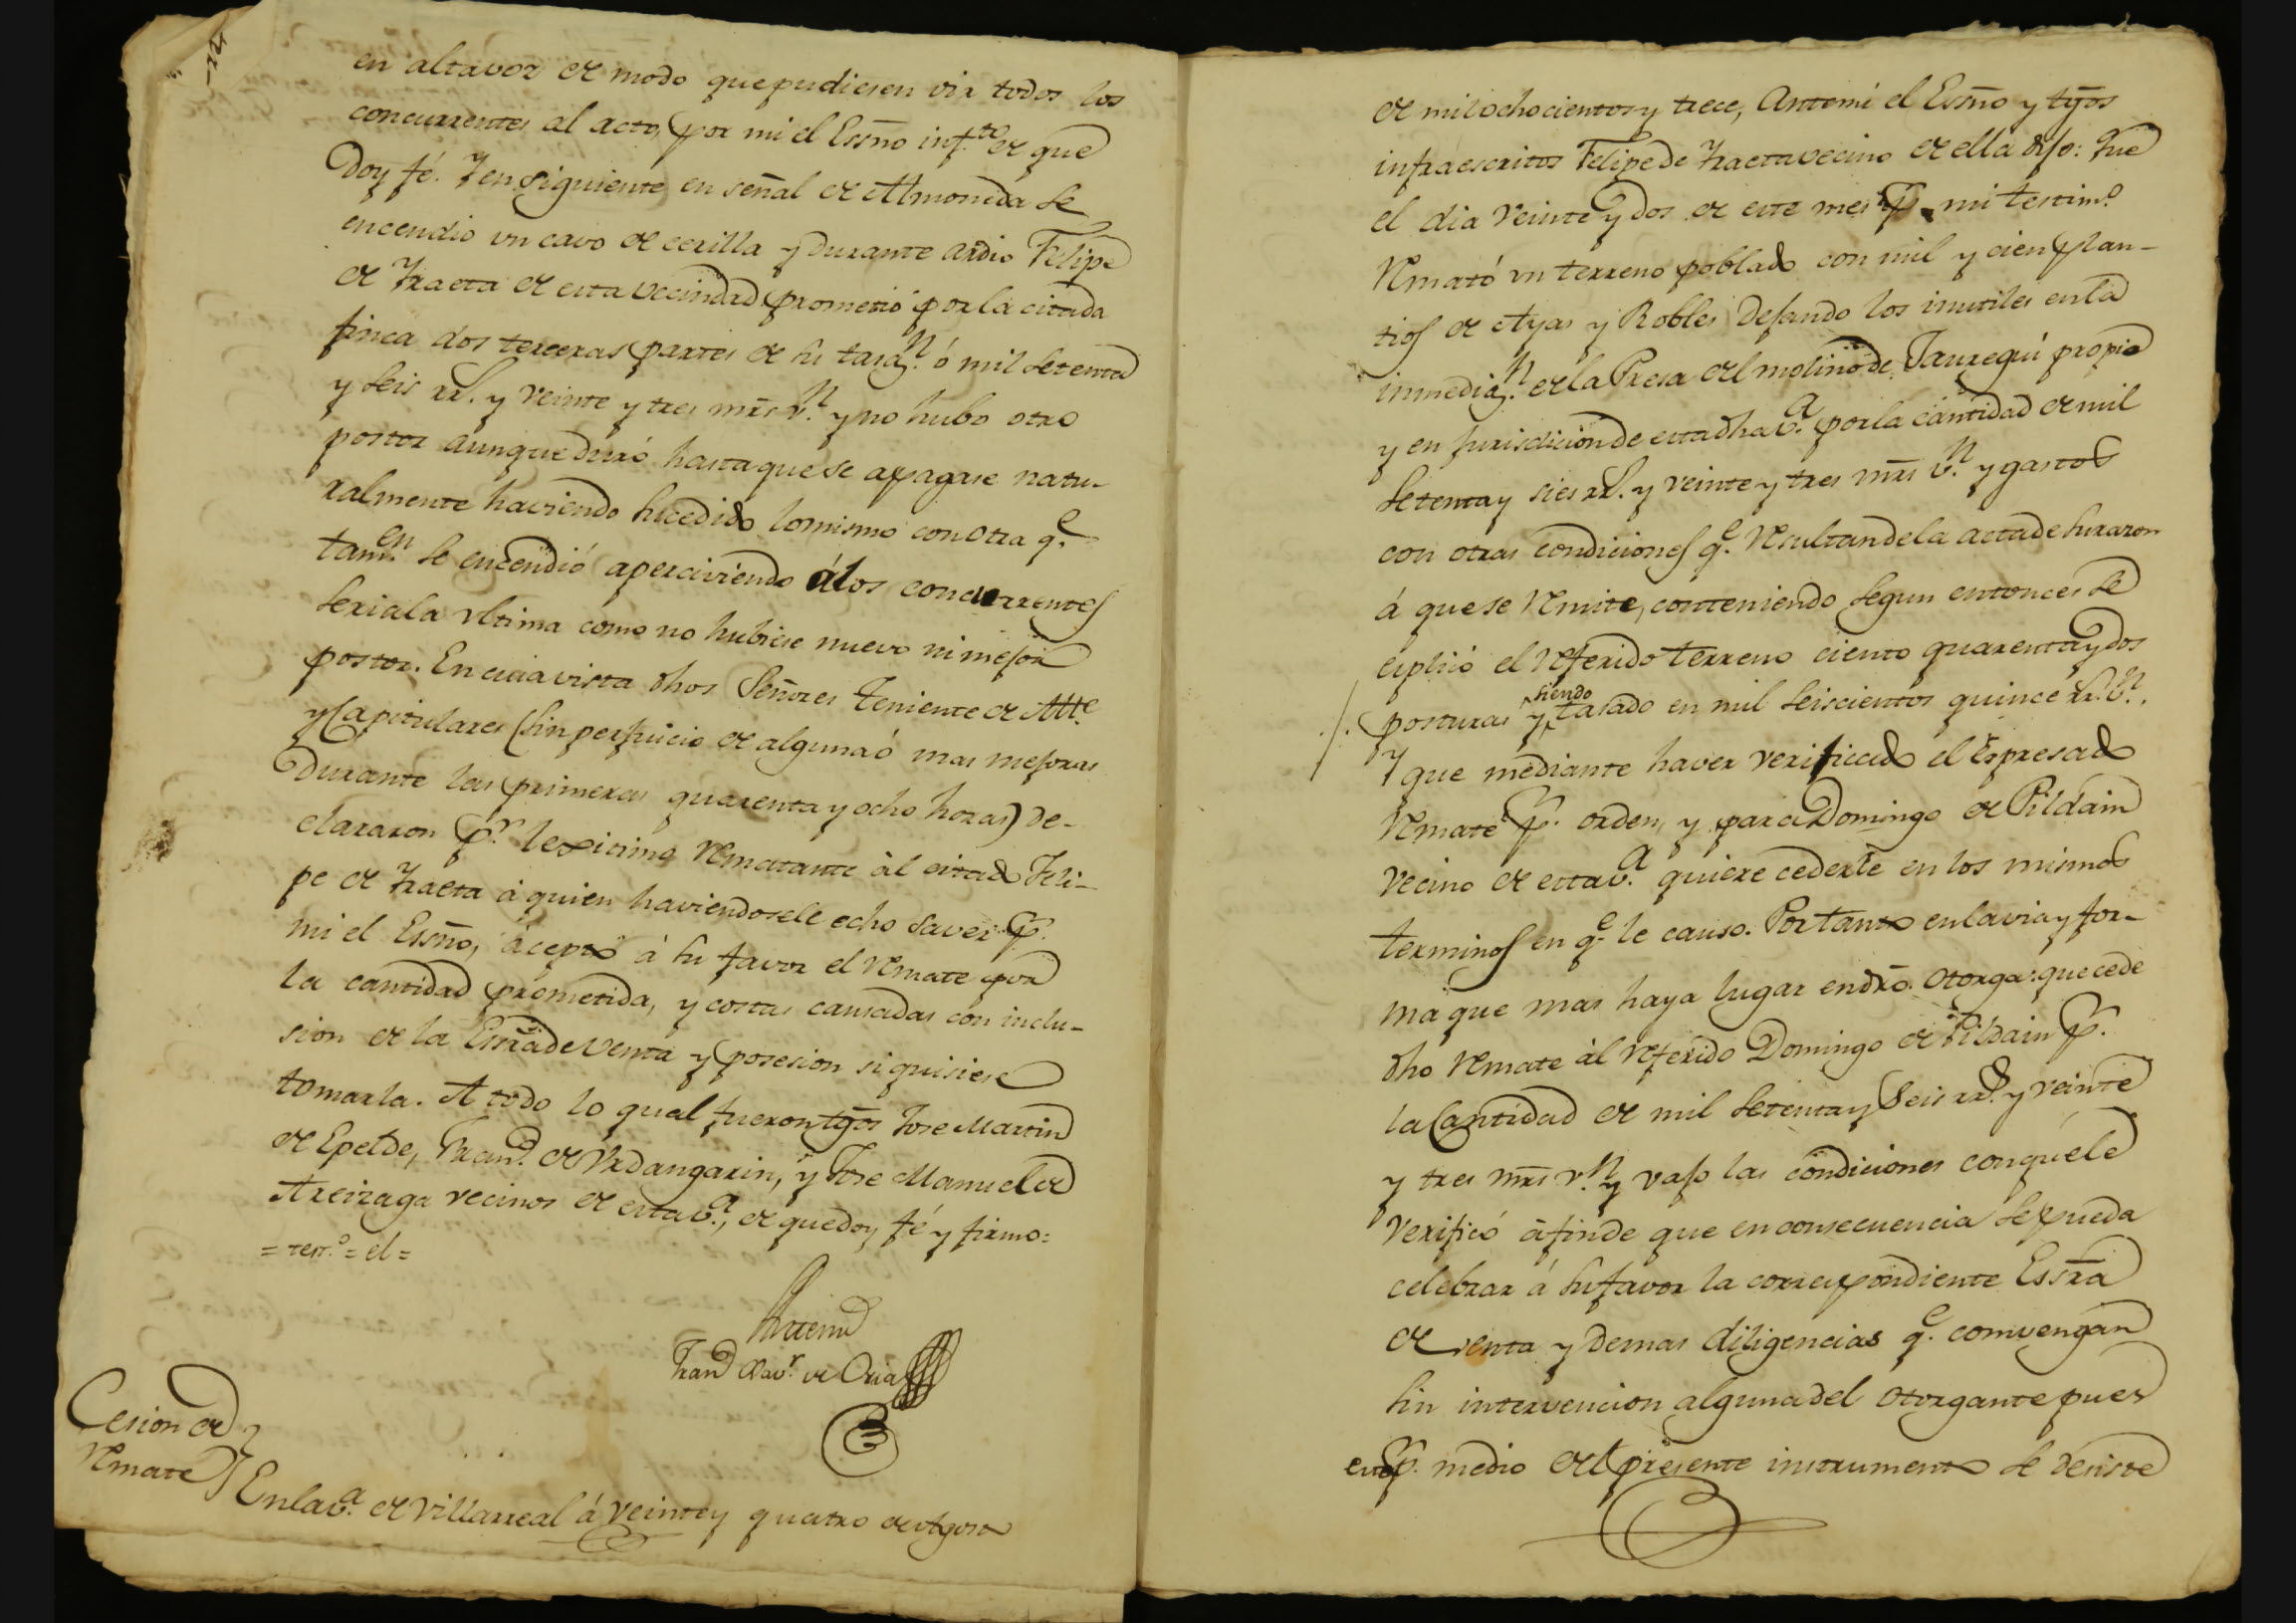 en altavoz de modo que pudiesen oir todos los
concurrentes al acto, por mi el Essño inf.to de que
Doy fé. Y en siguiente en señal de Almoneda se
encendio un cavo de cerilla y Durante ardio Felipe
de Yraeta de esta vecindad prometió por la citada
finca dos terceras partes de su tasaz.n ó mil setenta
y seis rr.s y veinte y tres mrs v.n y no hubo otro
postor aunque duró hasta que se apagase natu-
ralmente haviendo sucedido lo mismo con otra q.e
tamv.en se encendió aperciviendo á los concurrentes
seria la ultima como no hubiese nuevo ni mejor
postor. En cuia vista dhos Señores Teniente de Alle
y Capitulares (sin perjuicio de alguna ó mas mejoras
Durante las primeras quarenta y ocho horas) de-
clararon p.r lexitimo rematante àl citado Feli-
pe de Yraeta à quien haviendosele echo saver p.r
mi el Essño, àceptó à su favor el remate por
la cantidad prometida, y costas causadas con inclu-
sion de la Essra de Venta y posesion si quisiese
tomarla. A todo lo qual fueron tgos Jose Martin
de Epelde, Fran.co de Urdangarin, y Jose Manuel de
Areizaga vecinos de esta v.a, de que doy fé y firmo:
= terr.o = el =
Antemi
Fran.co Xav.r de Oria
Cesion de
remate
En la v.a de Villarreal á veinte y quatro de Agosto
de mil ochocientos y trece, Antemi el Essño y tgos
infraescritos Felipe de Yraeta vecino de ella dijo: Que
el dia veinte y dos de este mes p.r mi testim.o
remató un terreno poblado con mil y cien plan-
tios de Ayas y Robles dejando los inutiles en la
inmediaz.n de la Presa del molino de Jauregui propio
y en jurisdicion de esta dha v.a por la cantidad de mil
setenta y sies rr.s y veinte y tres mrs v.n y gastos
con otras condiciones q.e resultan de la acta de su razon
á que se remite, conteniendo segun entonces se
esplicó el referido terreno ciento quarenta y dos
posturas y siendo tasado en mil seiscientos quince rr.s v.n.
Y que mediante haver verificado el espresado
remate p.r orden, y para Domingo de Pildain
vecino de esta v.a quiere cederle en los mismos
terminos en q.e le causo. Por tanto en la via y for-
ma que mas haya lugar en dro. otorga: que cede
dho remate àl referido Domingo de Pildain p.r
la Cantidad de mil setenta y seis rr.s y veinte
y tres mrs v.n y vajo las condiciones con què le
verificó à fin de que en consecuencia se pueda
celebrar á su favor la correspondiente Essra
de venta y demas diligencias q.e comvengan
sin intervencion alguna del otorgante pues
p.r medio del presente instrumento se desiste